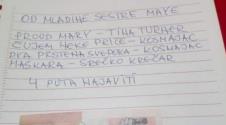 OD MLADINE SESTRE MAYE
PROUD MARY - TINA TURNER
ČUJEM NEKE PRIČE - KOSMAJAC
DVA PRSTENA SVEDOKA - KOSMAJAC
MASKARA - SREĆKO KREČAR
4 PUTA NAJAVITI